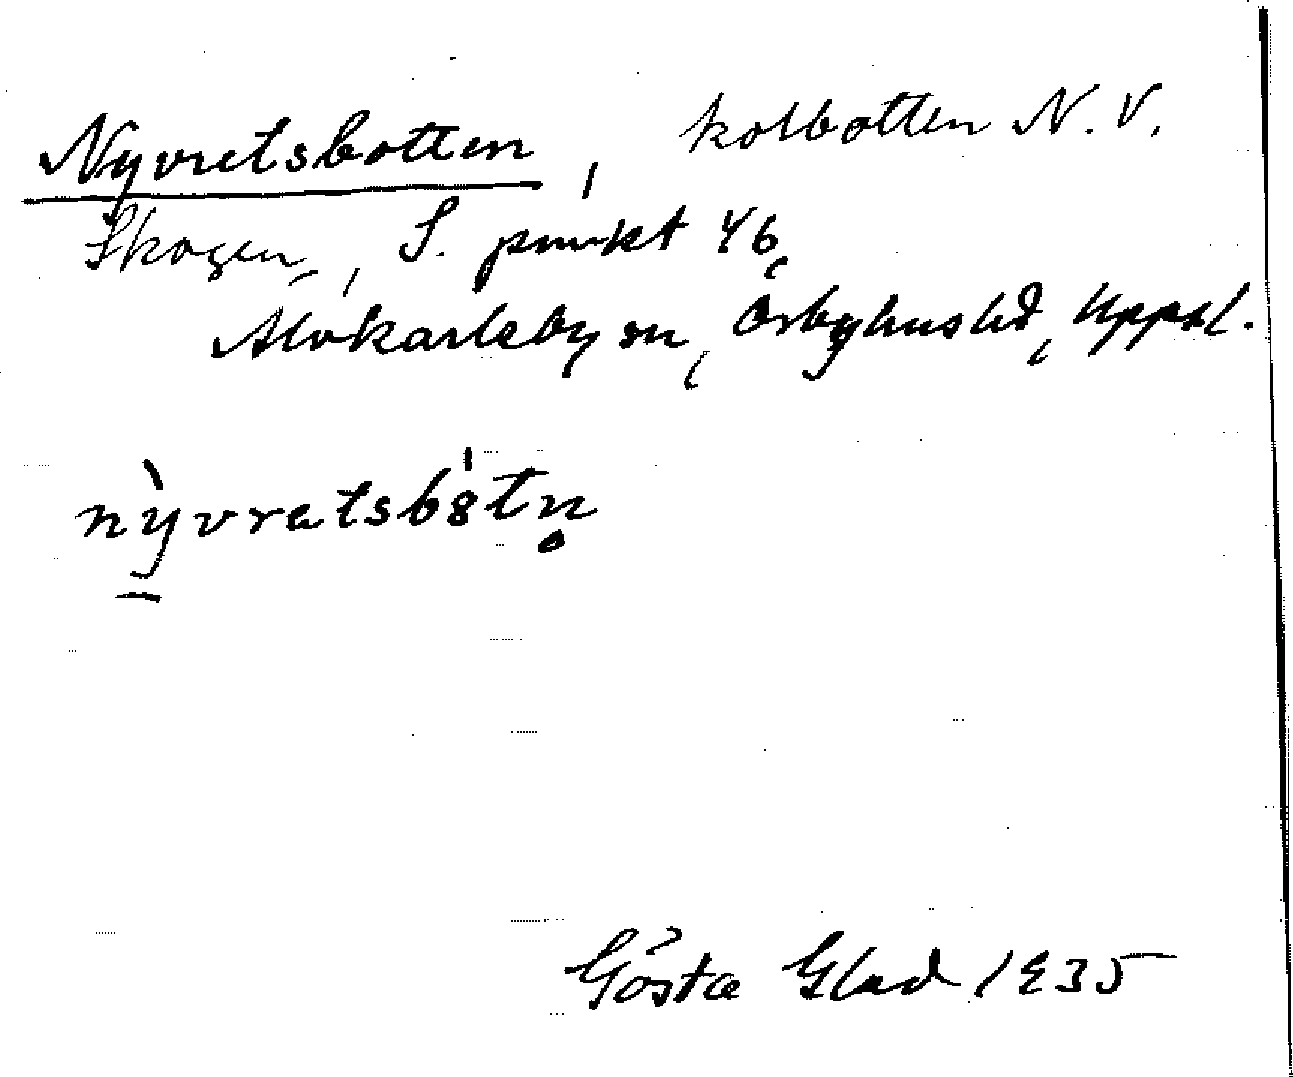 Nyvretsbotten, kolbotten N.V.
Skogen, S. punkt 46,
Älvkarleby sn, Örbyhus hd, Uppsl.
nỳvretsbåtn̥
Gösta Glad 1935